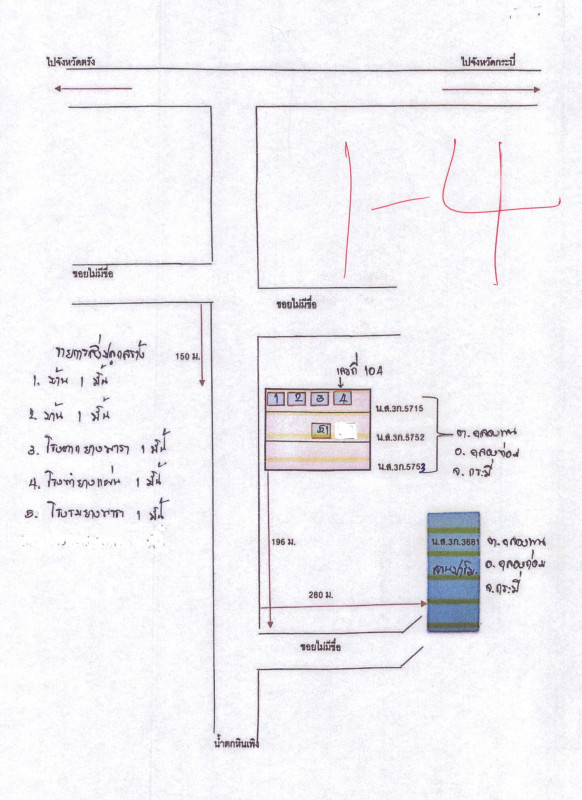 ไปจังหวัดตรัง
ไปจังหวัดกระบี่
1-4
ซอยไม่มีชื่อ
ซอยไม่มีชื่อ
รายการสิ่งปลูกสร้าง
150 ม.
เลขที่ 104
1. บ้าน 1 ชั้น
2. บ้าน 1 ชั้น
3. โรงตากยางพารา 1 ชั้น
4. โรงทำยางแผ่น 1 ชั้น
5. โรงรมยางพารา 1 ชั้น
1 2 3 4
น.ส.3ก.5715
น.ส.3ก.5752
น.ส.3ก.5753
ต. คลองพน
อ. คลองท่อม
จ. กระบี่
196 ม.
น.ส.3ก.3681
ต. คลองพน
อ. คลองท่อม
จ. กระบี่
280 ม.
ซอยไม่มีชื่อ
น้ำตกหินเพิง